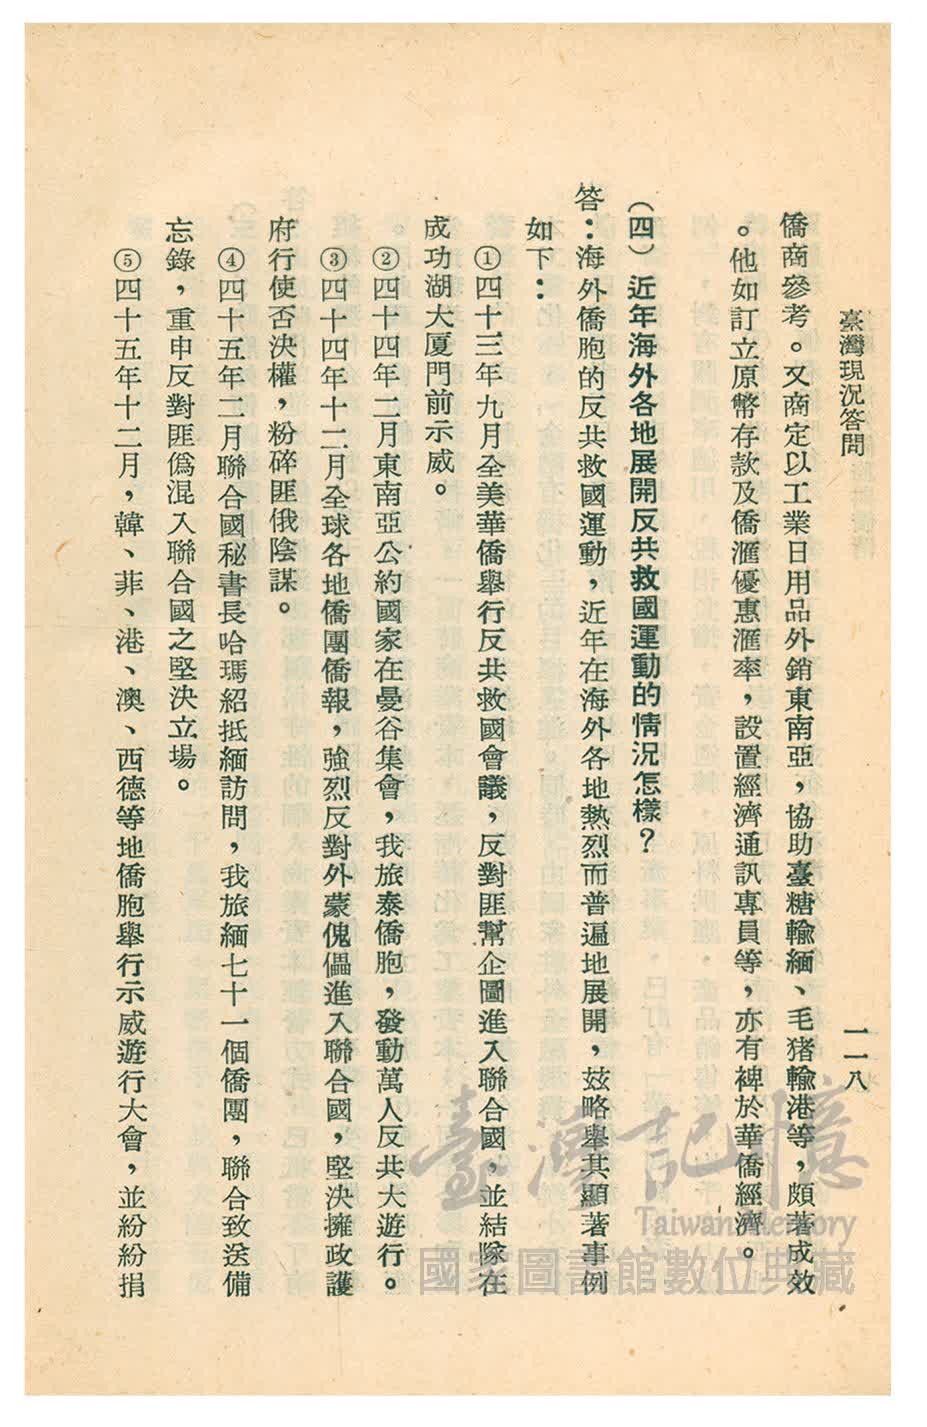 臺灣現況答問
一一八
僑商參考。又商定以工業日用品外銷東南亞，協助臺糖輸緬、毛猪輸港等，頗著成效
。他如訂立原幣存款及僑滙優惠滙率，設置經濟通訊專員等，亦有裨於華僑經濟。
（四）近年海外各地展開反共救國運動的情況怎樣？
答：海外僑胞的反共救國運動，近年在海外各地熱烈而普遍地展開，玆略舉其顯著事例
如下：
①四十三年九月全美華僑舉行反共救國會議，反對匪幫企圖進入聯合國，並結隊在
成功湖大厦門前示威。
②四十四年二月東南亞公約國家在曼谷集會，我旅泰僑胞，發動萬人反共大遊行。
③四十四年十二月全球各地僑團僑報，強烈反對外蒙傀儡進入聯合國，堅決擁政護
府行使否決權，粉碎匪俄陰謀。
④四十五年二月聯合國秘書長哈瑪紹抵緬訪問，我旅緬七十一個僑團，聯合致送備
忘錄，重申反對匪僞混入聯合國之堅決立場。
⑤四十五年十二月，韓、菲、港、澳、西德等地僑胞舉行示威遊行大會，並紛紛捐
臺灣記憶
Taiwan Memory
國家圖書館數位典藏